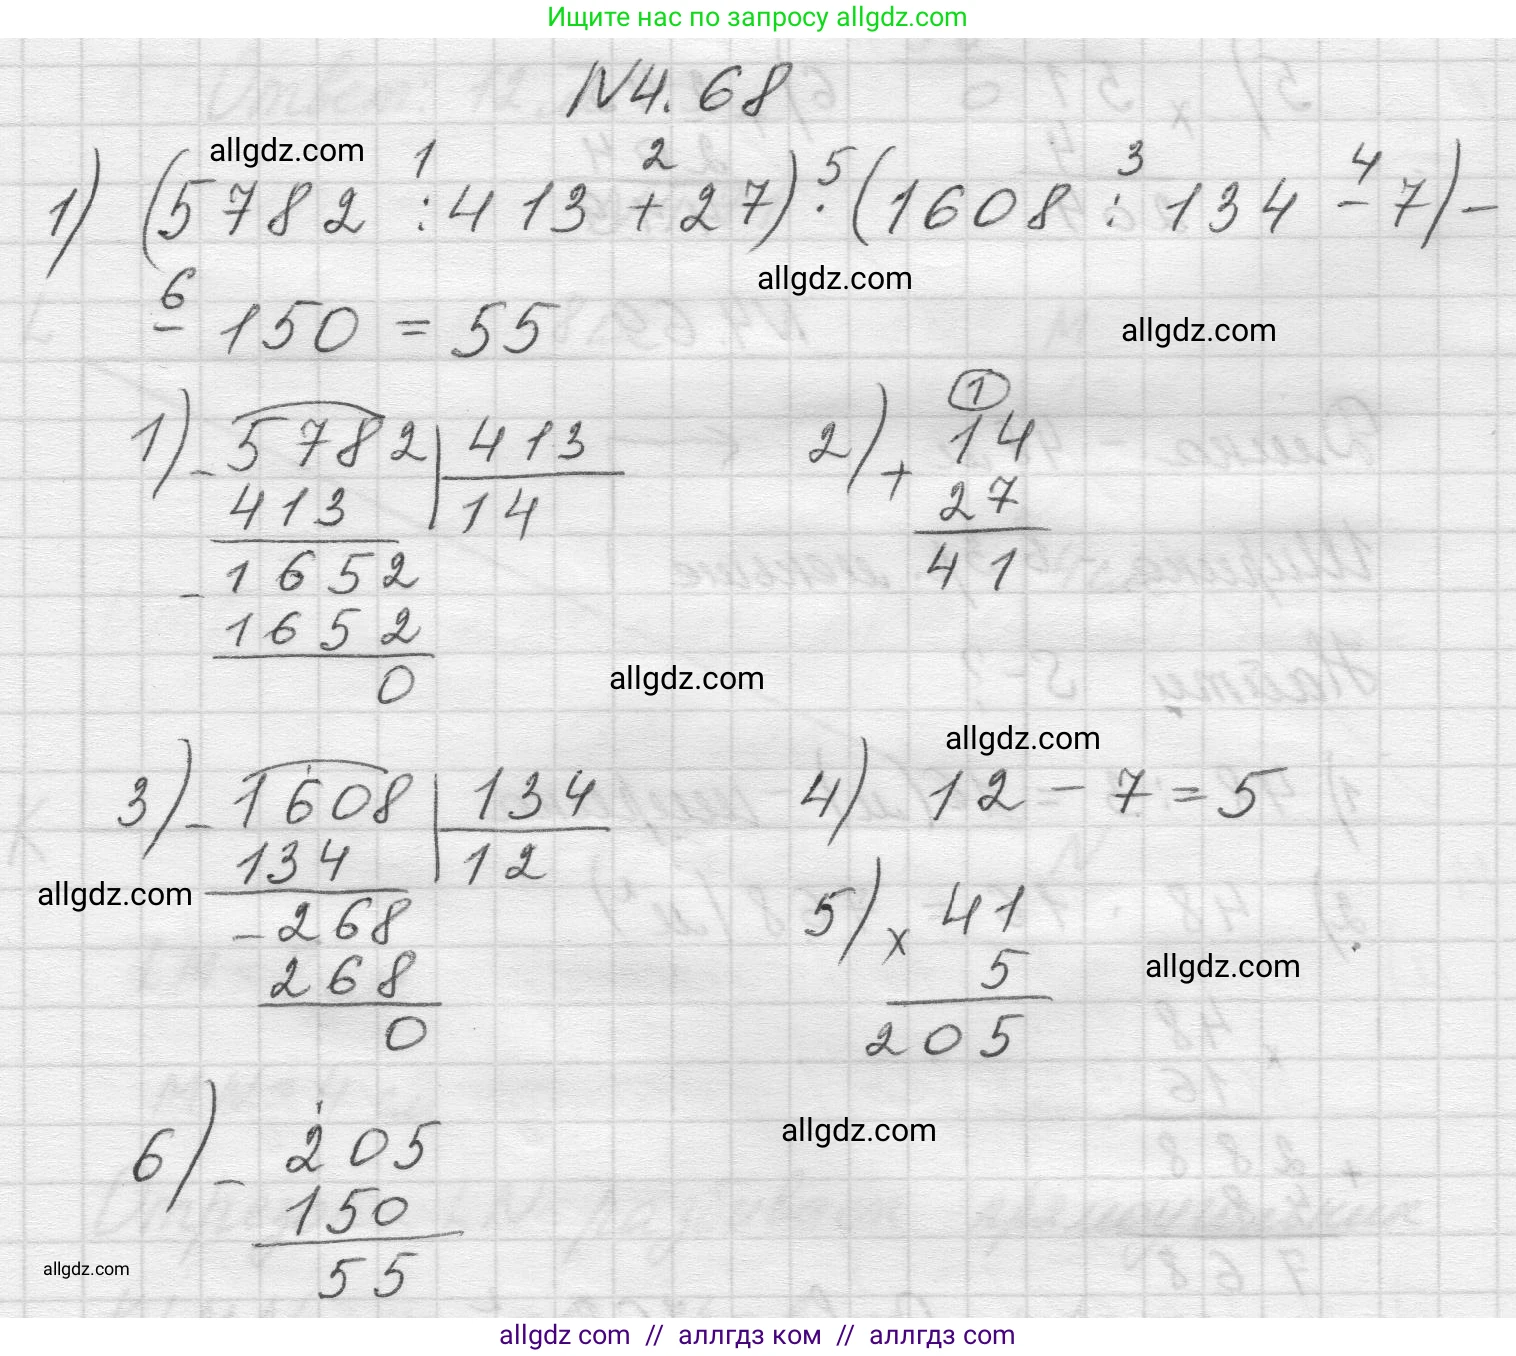 Ищите нас по запросу allgdz.com
N4.68
allgdz.com
1 2 5 3 4
1) (5782 : 413 + 27) · (1608 : 134 - 7) -
allgdz.com
6
- 150 = 55
allgdz.com
1) - 5782 | 413
413 | 14
- 1652
1652
0
1
2) + 14
27
41
allgdz.com
allgdz.com
3) - 1608 | 134
134 | 12
- 268
268
0
4) 12 - 7 = 5
allgdz.com
5) x 41
5
205
allgdz.com
6) - 205
150
55
allgdz.com
allgdz.com
allgdz com // аллгдз ком // аллгдз com